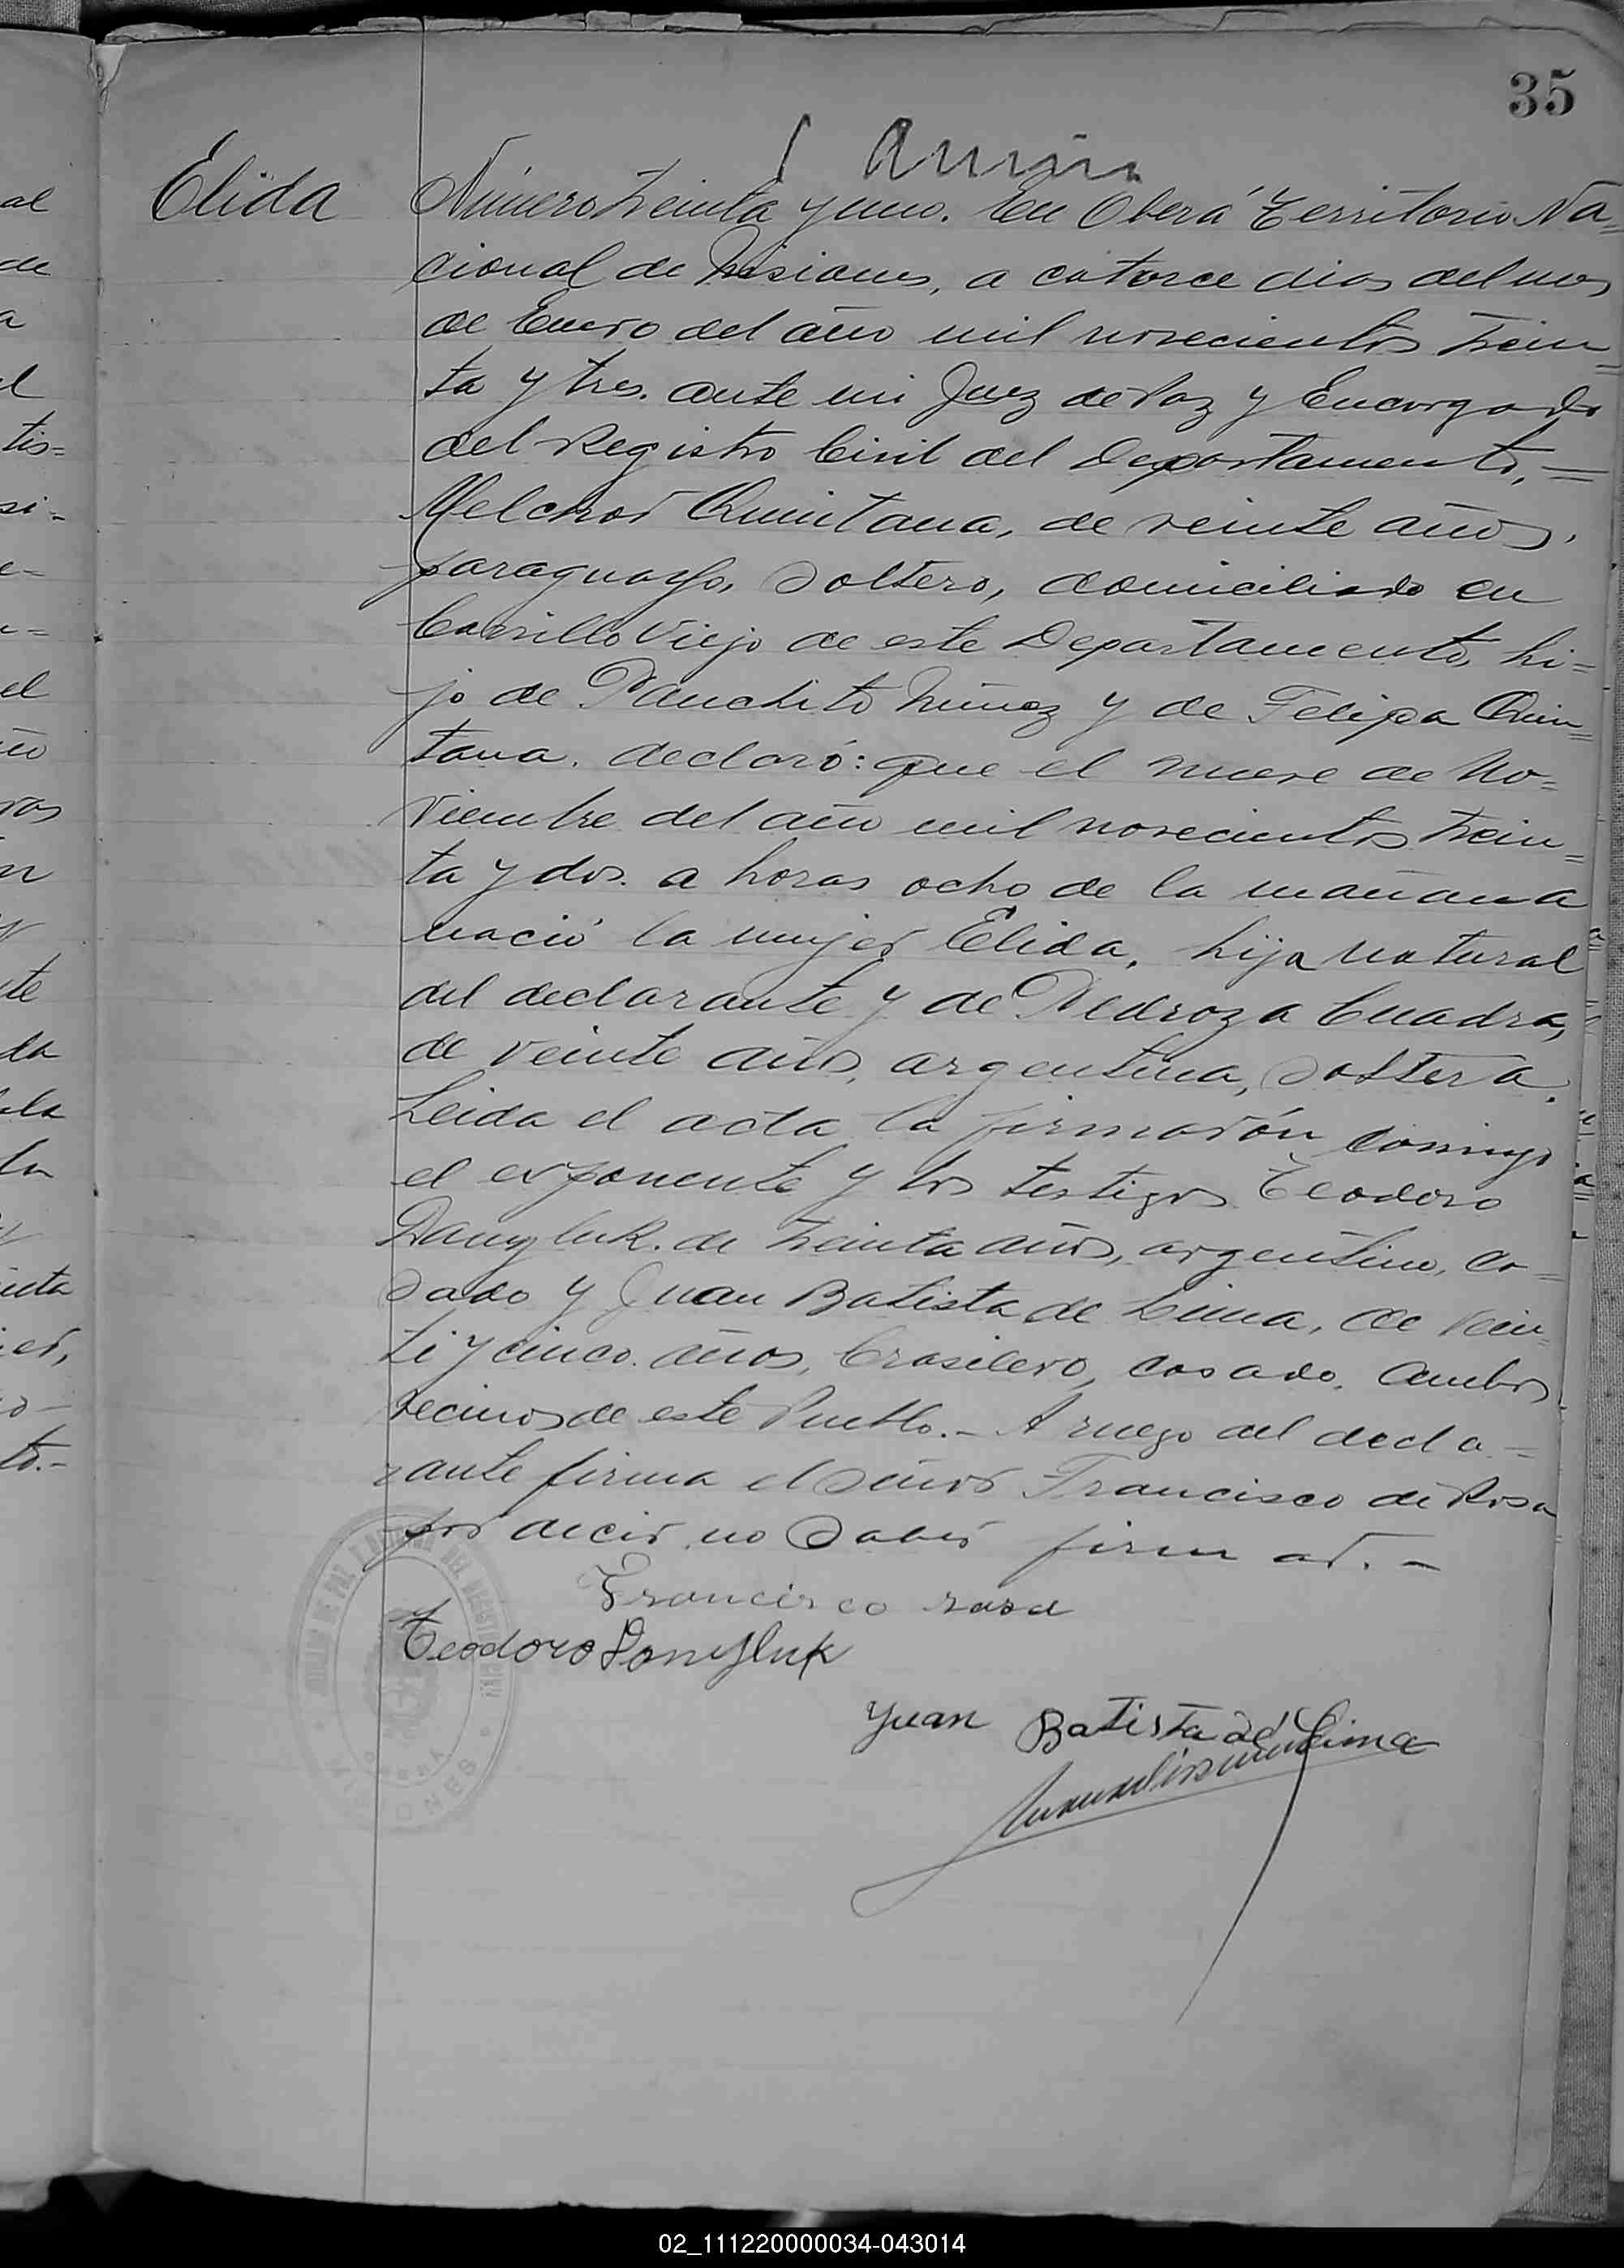 35
Elida
Número treinta y uno. En Oberá Territorio Na=
cional de Misiones, a catorce dias del mes
de Enero del año mil novecientos trein=
ta y tres. ante mi Juez de Paz y Encargado
del Registro Civil del Departamento, =
Melchor Quintana, de veinte años,
paraguayo, soltero, domiciliado en
Cerrillo Viejo de este Departamento, hi=
jo de Panchito Núñez y de Felipa Quin=
tana. declaró: que el nueve de No=
viembre del año mil novecientos trein=
ta y dos. a horas ocho de la mañana
nació la mujer Elida, hija natural
del declarante y de Pedroza Cuadra,
de veinte años, argentina, soltera.
Leida el acta la firmarón conmigo
el exponente y los testigos Teodoro
Danyluk. de treinta años, argentino, ca=
sado y Juan Batista de Lima, de vein=
ti y cinco años, brasilero, casado. Ambos
vecinos de este Pueblo.- A ruego del decla=
rante firma el Señor Francisco de Rosa
por decir no saber firmar. -
Francisco rosa
Teodoro Danyluk
Juan Batista de Lima
MISIONES
02_111220000034-043014